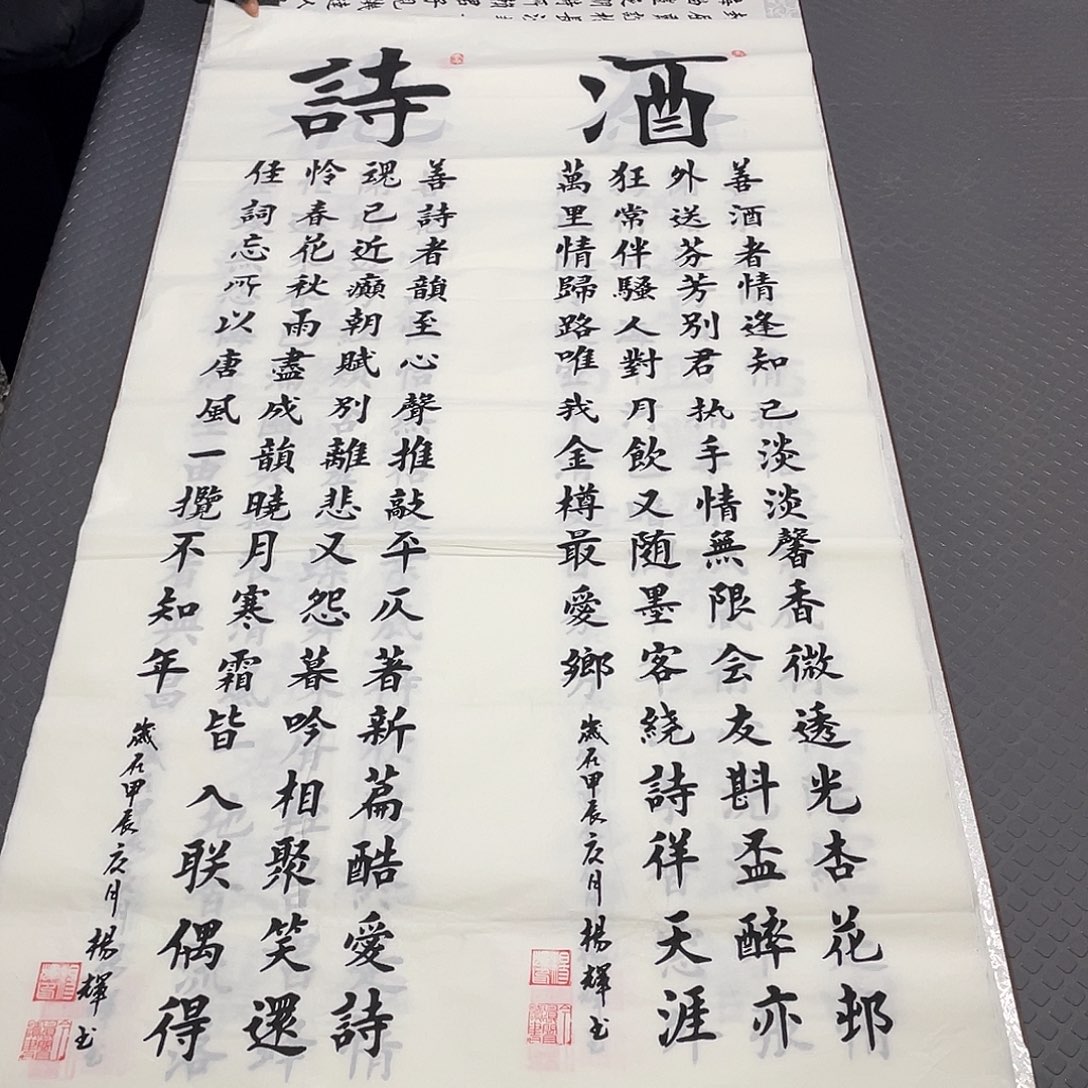 酒
善酒者情逢知己淡淡馨香微透光杏花邨
外送芬芳別君执手情無限会友斟盃醉亦
狂常伴騷人對月飲又随墨客绕詩徉天涯
萬里情歸路唯我金樽最愛鄉
歲在甲辰月楊輝书
詩
善詩者韻至心聲推敲平仄著新篇酷愛詩
魂已近癲朝賦別離悲又怨暮吟相聚笑還
怜春花秋雨盡成韻曉月寒霜皆入联偶得
佳詞忘所以唐風一攬不知年
歲在甲辰月楊輝书